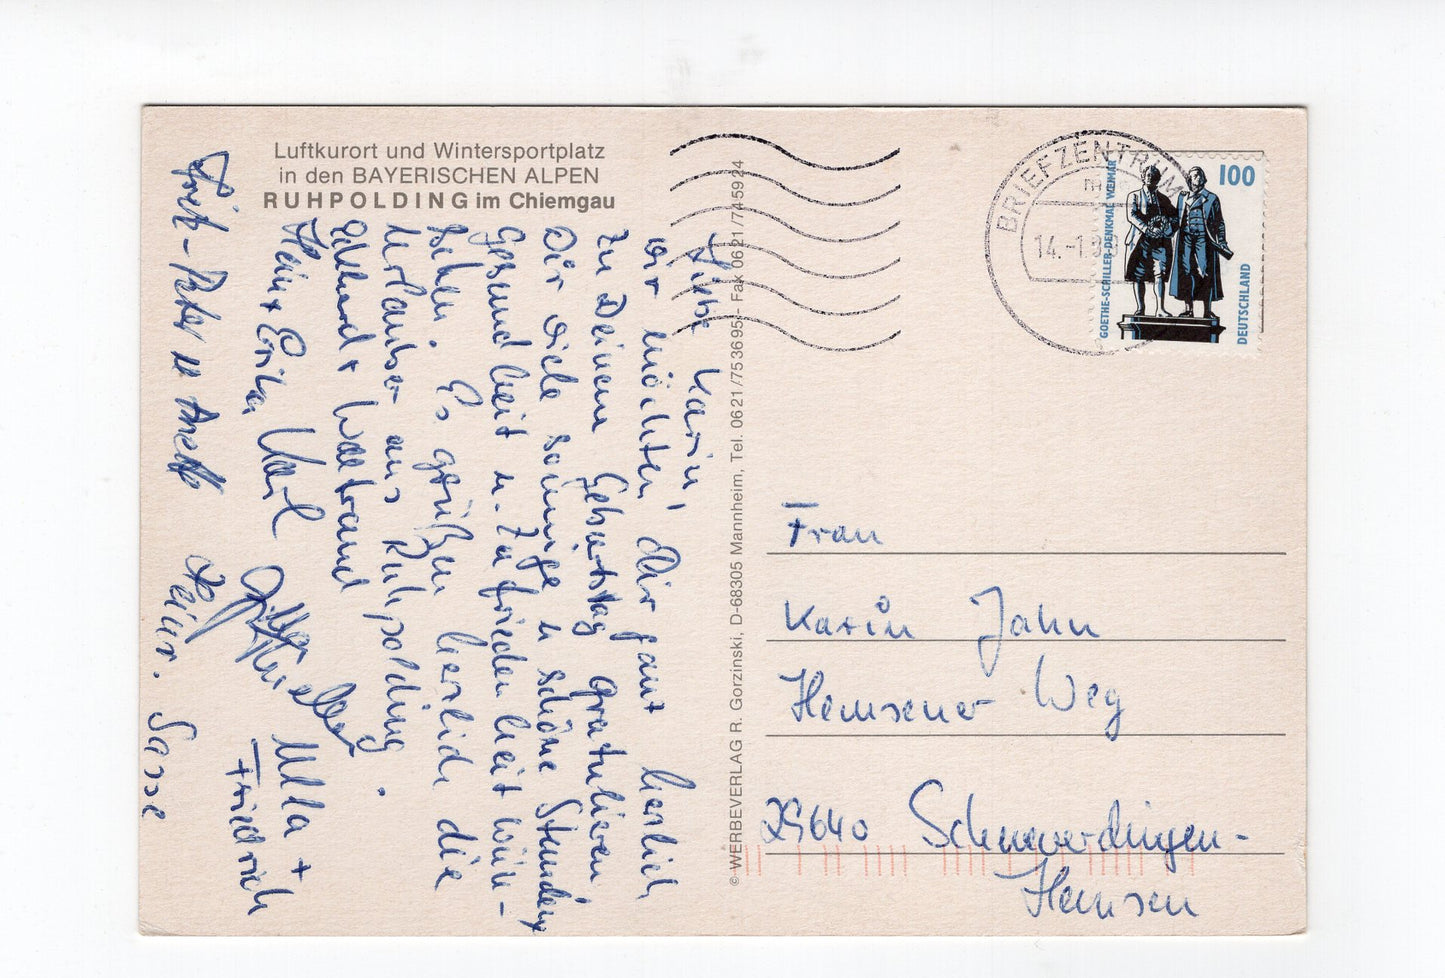 Luftkurort und Wintersportplatz
in den BAYERISCHEN ALPEN
RUHPOLDING im Chiemgau
Liebe Karin,
wir möchten Dir ganz herzlich
zu Deinem Geburtstag gratulieren
Dir viele sonnige u schöne Stunden,
Gesundheit u. Zufriedenheit wün-
schen. Es grüßen herzlich die
Urlauber aus Ruhpolding.
Ekkhard + Waltraud
Heinz + Erika Karl
Ulla +
Friedrich
Fritz-Peter u
Heinr. Sasse
© WERBEVERLAG R. Gorzinski, D-68305 Mannheim, Tel. 0621/753695 - Fax 0621/745924
BRIEFZENTRUM
14.-1.
GOETHE-SCHILLER-DENKMAL WEIMAR
100
DEUTSCHLAND
Frau
Karin Jahn
Hemsener Weg
29640 Schneverdingen-
Hemsen